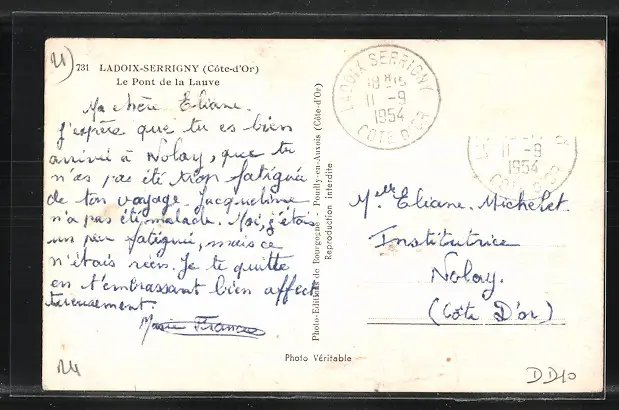 21
731 LADOIX-SERRIGNY (Côte-d'Or)
Le Pont de la Lauve
Ma chère Eliane.
J'espère que tu es bien
arrivée à Nolay, que tu
n'as pas été trop fatiguée
de ton voyage. Jacqueline
n'a pas été malade. Moi, j'étais
un peu fatiguée, mais ce
n'étais rien. Je te quitte
en t'embrassant bien affect
ueusement.
Marie France
Photo-Editions de Bourgogne - Pouilly-en-Auxois (Côte-d'Or)
Reproduction interdite
Photo Véritable
LADOIX SERRIGNY
18 H 15
11 -9
1954
COTE D'OR
11 -9
1954
COTE D'OR
Melle Eliane Michelet.
Institutrice
Nolay.
(Côte D'or)
DD10